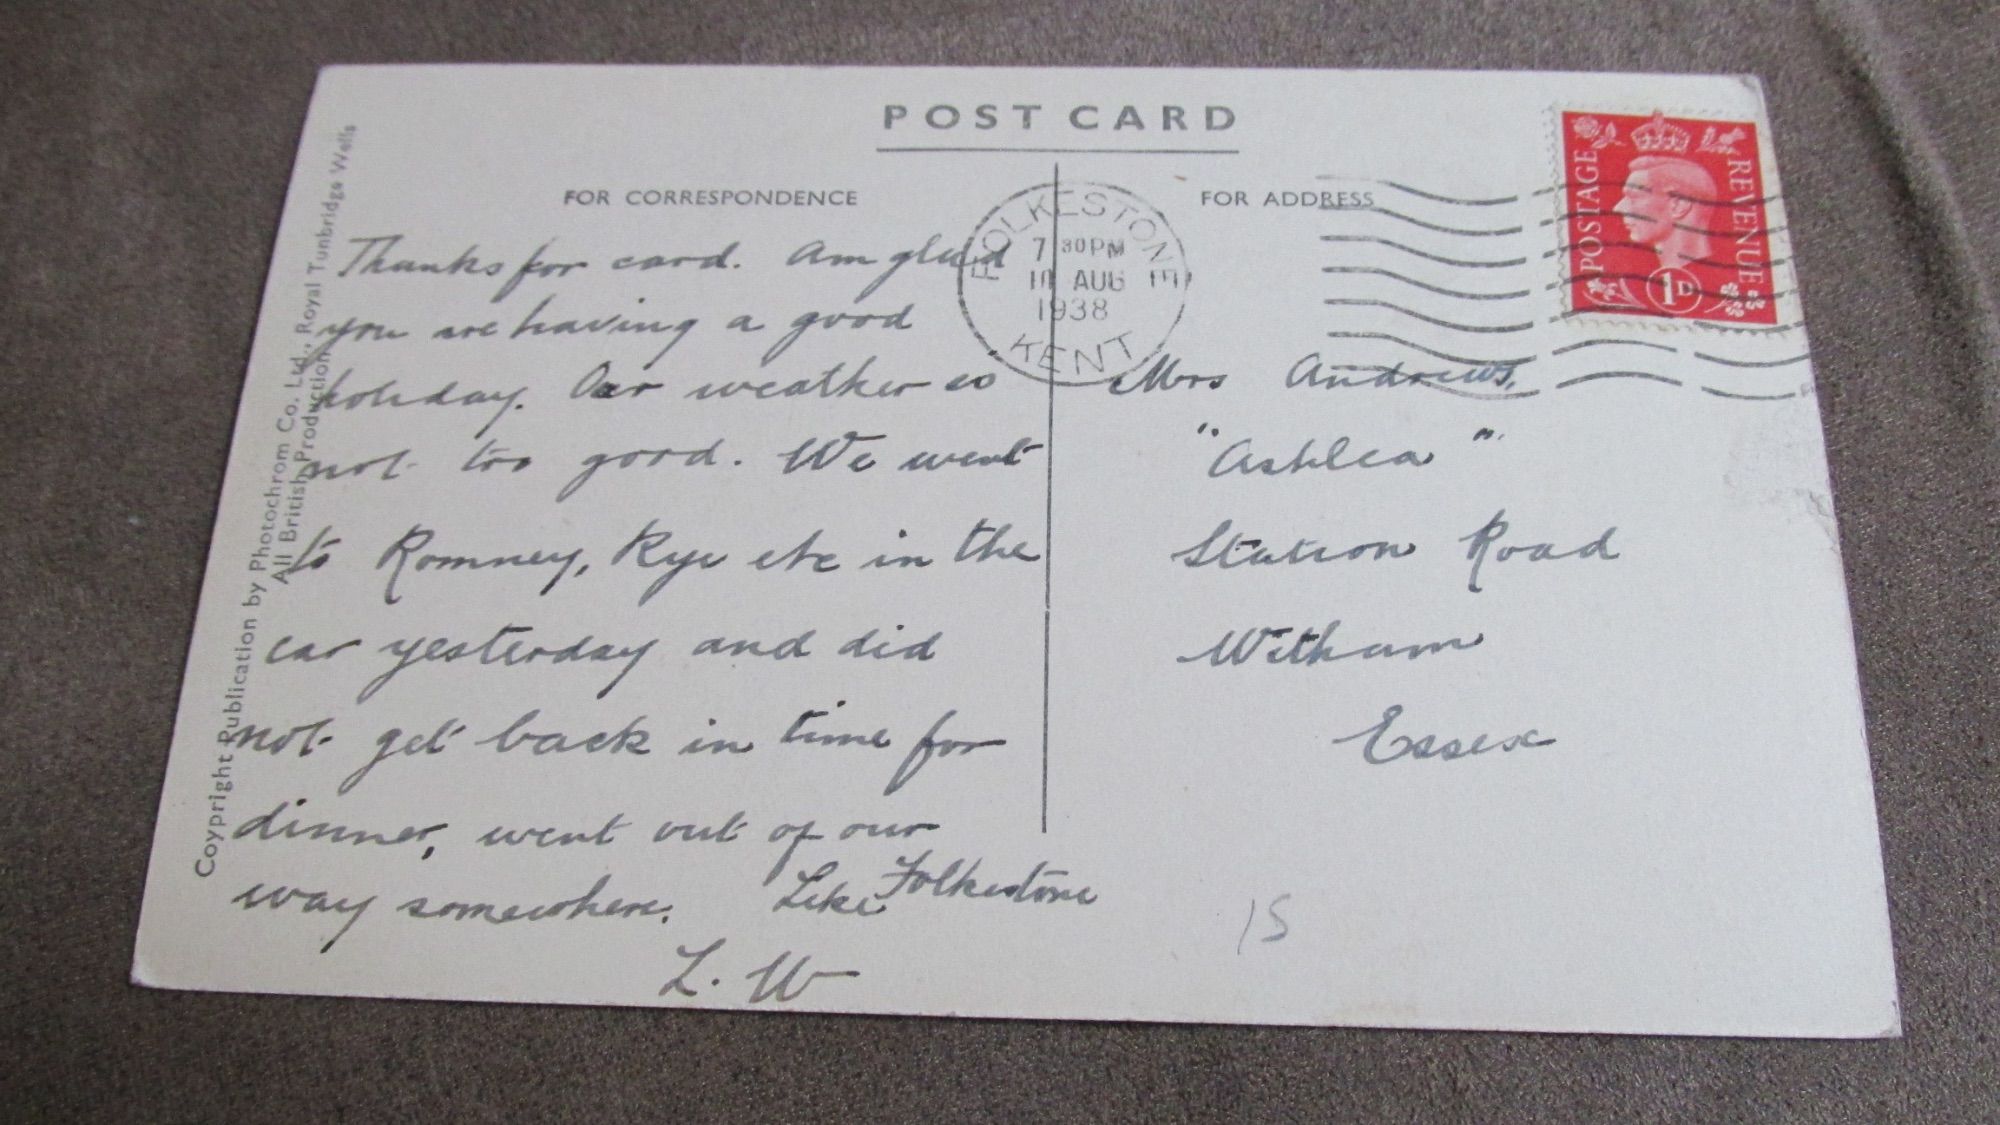 POST CARD
FOR CORRESPONDENCE
FOR ADDRESS
Thanks for card. Am glad
you are having a good
holiday. Our weather is
not too good. We went
to Romney, Rye etc in the
car yesterday and did
not get back in time for
dinner, went out of our
way somewhere. Like Folkestone
L. W
FOLKESTONE
7 30 PM
10 AUG
1938
KENT
POSTAGE
REVENUE
1D
Mrs Andrews,
"Ashlea"
Station Road
Witham
Essex
15
Coypright Publication by Photochrom Co. Ltd., Royal Tunbridge Wells
All British Production